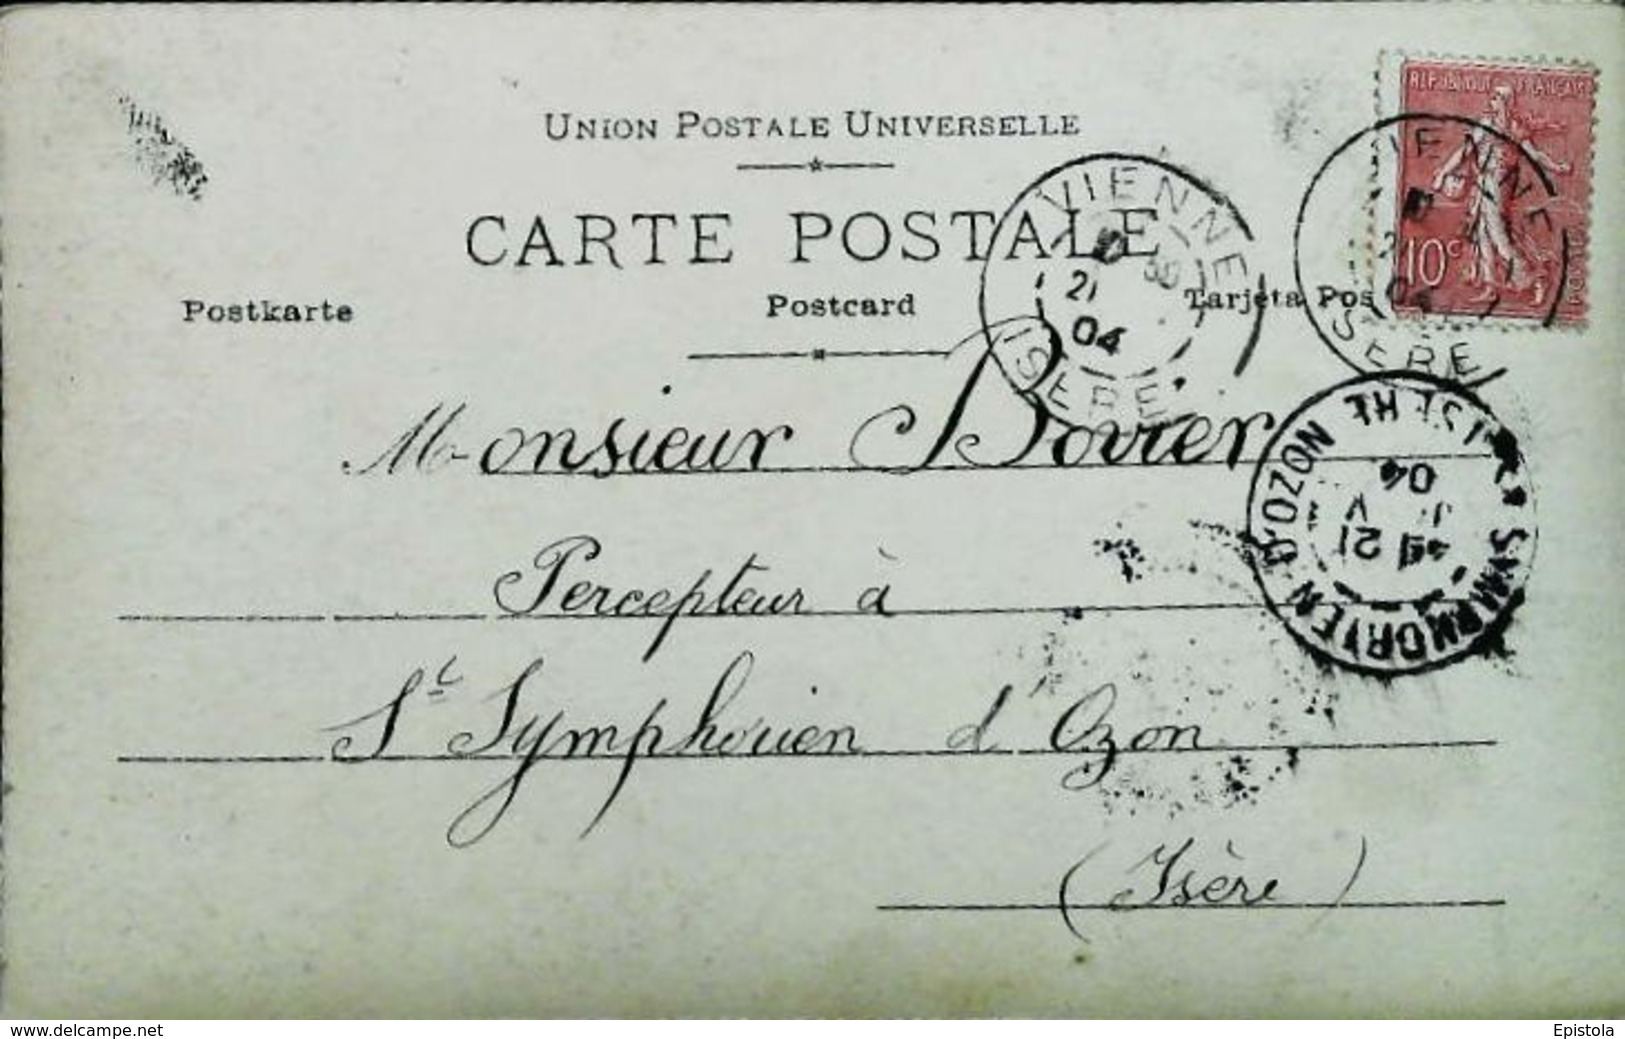 UNION POSTALE UNIVERSELLE
CARTE POSTALE
Postkarte Postcard Tarjeta Pos
REPUBLIQUE FRANCAISE
10c
VIENNE
21
04
ISERE
IENNE
04
ISERE
SYMPHORIEN D'OZON
21
04
ISERE
Monsieur Bovier
Percepteur à
St Symphorien d'Ozon
(Isère)
www.delcampe.net
Epistola